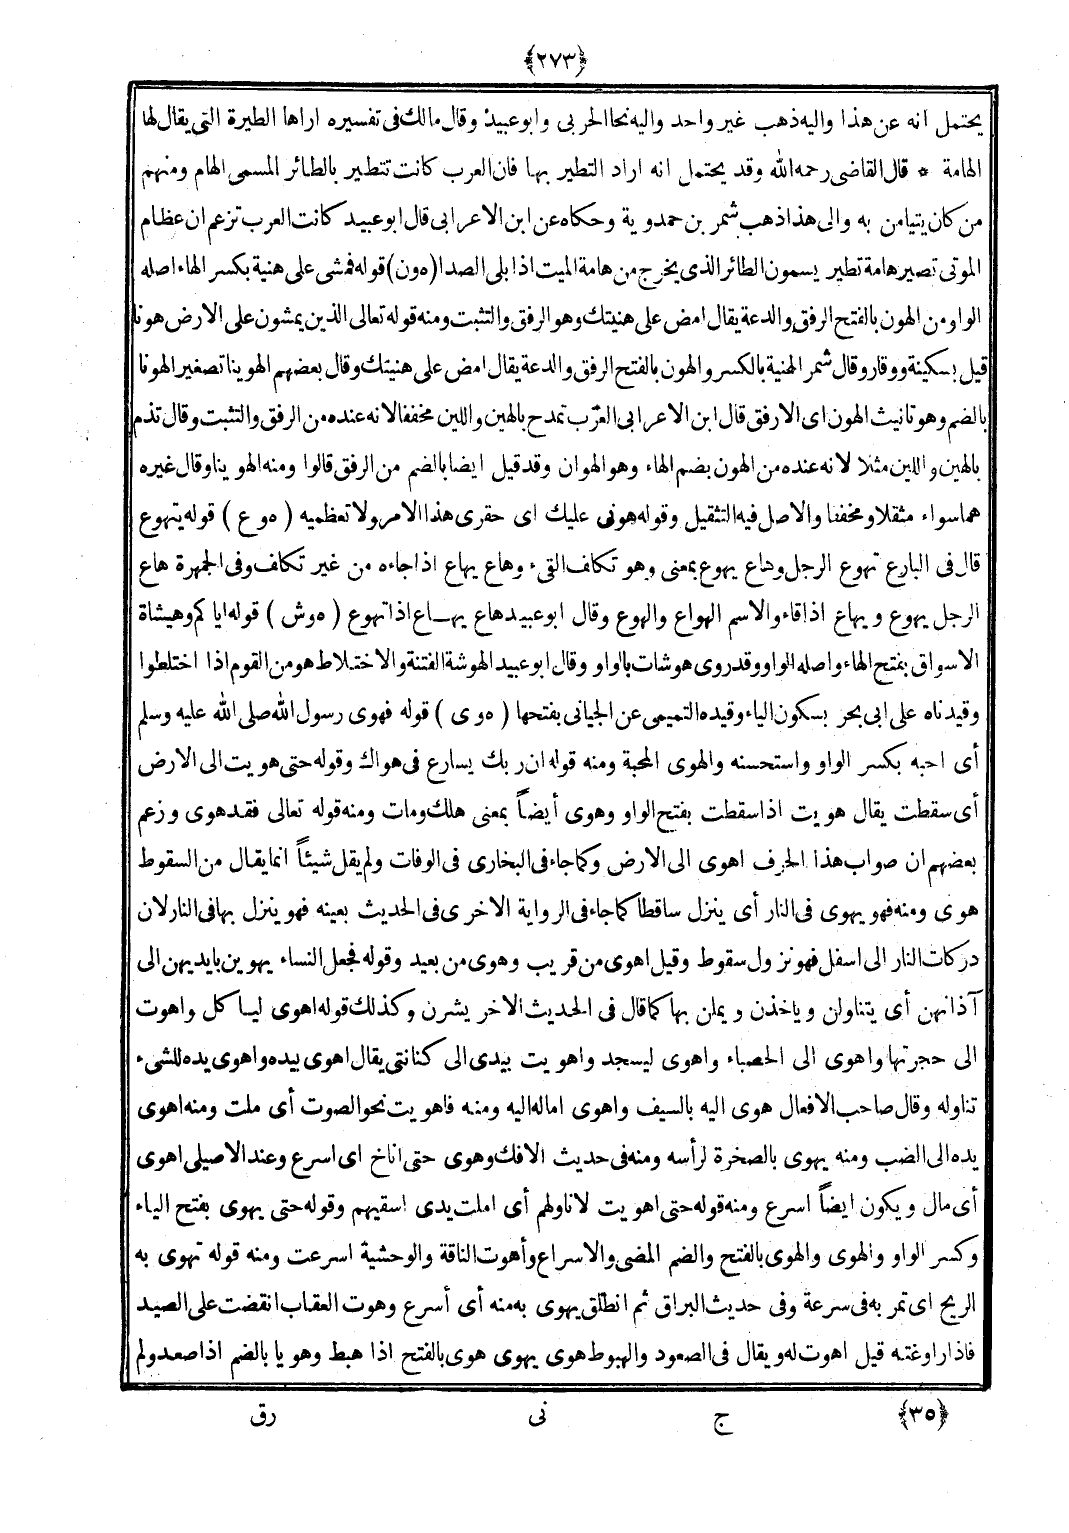 ﴿٢٧٣﴾
يحتمل انه عن هذا واليه ذهب غير واحد واليه نحا الحربى وابو عبيد وقال مالك فى تفسيره اراها الطيرة التى يقال لها
الهامة * قال القاضى رحمه الله وقد يحتمل انه اراد التطير بها فان العرب كانت تتطير بالطائر المسمى الهام ومنهم
من كان يتيامن به والى هذا ذهب شمر بن حمدوية وحكاه عن ابن الاعرابى قال ابو عبيد كانت العرب تزعم ان عظام
الموتى تصير هامة تطير يسمون الطائر الذى يخرج من هامة الميت اذا بلى الصدا (ه ون) قوله فمشى على هنية بكسر الهاء اصله
الواو من الهون بالفتح الرفق والدعة يقال امض على هنيتك وهو الرفق والتثبت ومنه قوله تعالى الذين يمشون على الارض هونا
قيل بسكينة ووقار وقال شمر الهنية بالكسر والهون بالفتح الرفق والدعة يقال امض على هنيتك وقال بعضهم الهوينا تصغير الهونا
بالضم وهو تانيث الهون اى الارفق قال ابن الاعرابى العرب تمدح بالهين واللين مخففا لانه عنده من الرفق والتثبت وقال تذم
بالهين واللين مثلا لانه عنده من الهون بضم الهاء وهو الهوان وقد قيل ايضا بالضم من الرفق قالوا ومنه الهوينا وقال غيره
هما سواء مثقلا ومخففا والاصل فيه التثقيل وقوله هونى عليك اى حقرى هذا الامر ولا تعظميه (ه و ع) قوله يتهوع
قال فى البارع تهوع الرجل وهاع يهوع بمعنى وهو تكاف القىء وهاع يهاع اذا جاءه من غير تكاف وفى الجمهرة هاع
الرجل يهوع ويهاع اذا قاء والاسم الهواع والهوع وقال ابو عبيد هاع يهــاع اذا تهوع (ه وش) قوله ايا كم وهيشاة
الاسواق بفتح الهاء واصله الواو وقد روى هوشات بالواو وقال ابو عبيد الهوشة الفتنة والاختلاط هو من القوم اذا اختلطوا
وقيدناه على ابى بحر بسكون الياء وقيده التميمى عن الجيانى بفتحها (ه و ى) قوله فهوى رسول الله صلى الله عليه وسلم
أى احبه بكسر الواو واستحسنه والهوى المحبة ومنه قوله ان ربك يسارع فى هواك وقوله حتى هويت الى الارض
أى سقطت يقال هويت اذا سقطت بفتح الواو وهوى أيضاً بمعنى هلك ومات ومنه قوله تعالى فقد هوى وزعم
بعضهم ان صواب هذا الحرف اهوى الى الارض وكما جاء فى البخارى فى الوفات ولم يقل شيئاً انما يقال من السقوط
هوى ومنه فهو يهوى فى النار أى ينزل ساقطا كما جاء فى الرواية الاخرى فى الحديث بعينه فهو ينزل بها فى النار لان
دركات النار الى اسفل فهو نزول سقوط وقيل اهوى من قريب وهوى من بعيد وقوله فجعل النساء يهوين بايديهن الى
آذانهن أى يتناولن وياخذن ويملن بها كما قال فى الحديث الاخر يشرن وكذلك قوله اهوى ليا كل واهوت
الى حجرتها واهوى الى الحصباء واهوى ليسجد واهويت بيدى الى كنانتى يقال اهوى بيده واهوى يده للشىء
تناوله وقال صاحب الافعال هوى اليه بالسيف واهوى اماله اليه ومنه فاهويت نحو الصوت أى ملت ومنه اهوى
يده الى الضب ومنه يهوى بالصخرة لرأسه ومنه فى حديث الافك وهوى حتى اناخ اى اسرع وعند الاصيلى اهوى
أى مال ويكون ايضاً اسرع ومنه قوله حتى اهويت لاناولهم أى املت يدى اسقيهم وقوله حتى يهوى بفتح الياء
وكسر الواو والهوى والهوى بالفتح والضم المضى والاسراع وأهوت الناقة والوحشية اسرعت ومنه قوله تهوى به
الريح اى تمر به فى سرعة وفى حديث البراق ثم انطلق يهوى به منه أى أسرع وهوت العقاب انقضت على الصيد
فاذا راوغته قيل اهوت له ويقال فى الصعود والهبوط هوى يهوى هوى بالفتح اذا هبط وهويا بالضم اذا صعد ولم
﴿٣٥﴾ ج نى رق